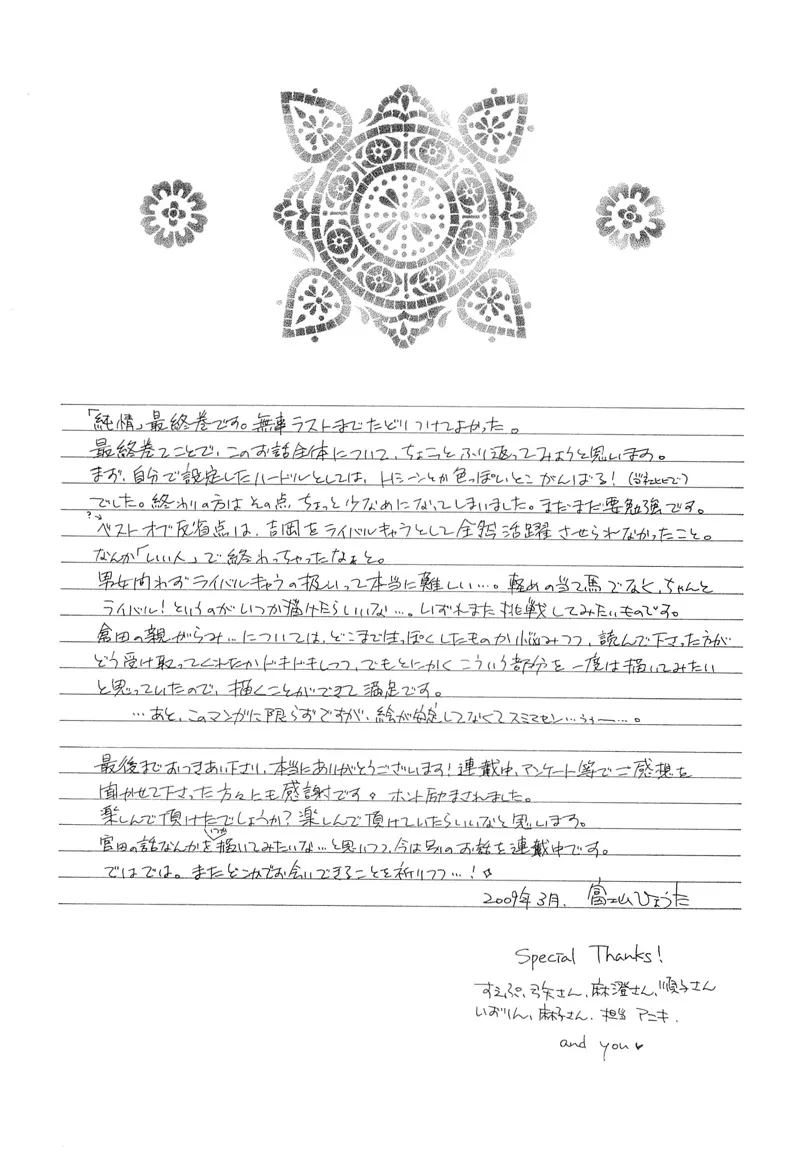 「純情」最終巻です。無事ラストまでたどりつけてよかった。
最終巻てことで、このお話全体について、ちょこっとふり返ってみようと思います。
まず、自分で設定したハードルとしては、Hシーンとか色っぽいとこがんばる!(当社比で)
でした。終わりの方はその点、ちょっと少なめになってしまいました。まだまだ要勉強です。
?→
ベストオブ反省点は、吉岡をライバルキャラとして全然活躍させられなかったこと。
なんか「いい人」で終わっちゃったなぁと。
男女問わずライバルキャラの扱いって本当に難しい…。軽めの当て馬でなく、ちゃんと
ライバル!というのがいつか描けたらいいな…。いずれまた挑戦してみたいものです。
倉田の親がらみ…については、どこまでほっぽくしたものか悩みつつ、読んで下さった方が
どう受け取ってくれたかドキドキしつつ、でもとにかくこういう部分を一度は描いてみたい
と思っていたので、描くことができて満足です。
…あと、このマンガに限らずですが、絵が安定してなくてスミマセン…うぅー…。
最後までおつきあい下さり、本当にありがとうございます!連載中、アンケート等でご感想を
聞かせて下さった方々にも感謝です。ホント励まされました。
楽しんで頂けたでしょうか?楽しんで頂けていたらいいなと思います。
宮田の話なんかをいつか描いてみたいな…と思いつつ、今は別のお話を連載中です。
ではでは。またどこかでお会いできることを祈りつつ…!☆
2009年3月. 富士山ひょうた
Special Thanks!
すえぷ、弓矢さん、麻澄さん、順子さん
いおりん、麻子さん、担当アニキ.
and you♥